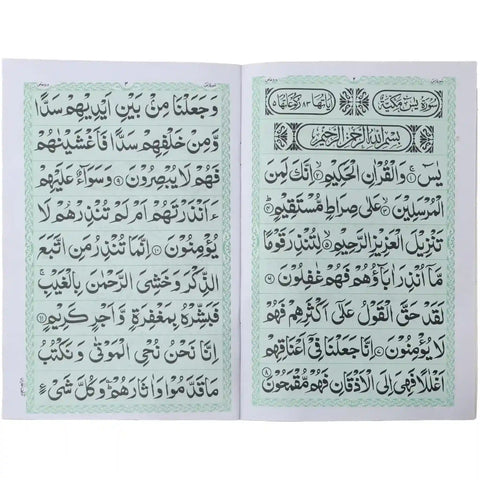 سُوْرَةُ يٰسٓ مَكِّيَّةٌ
اٰيَاتُهَا ٨٣ رُكُوْعَاتُهَا ٥
بِسْمِ اللّٰهِ الرَّحْمٰنِ الرَّحِيْمِ
يٰسٓ ۝١ وَالْقُرْاٰنِ الْحَكِيْمِ ۝٢ اِنَّكَ لَمِنَ
الْمُرْسَلِيْنَ ۝٣ عَلٰى صِرَاطٍ مُّسْتَقِيْمٍ ۝٤
تَنْزِيْلَ الْعَزِيْزِ الرَّحِيْمِ ۝٥ لِتُنْذِرَ قَوْمًا
مَّاۤ اُنْذِرَ اٰبَآؤُهُمْ فَهُمْ غٰفِلُوْنَ ۝٦
لَقَدْ حَقَّ الْقَوْلُ عَلٰۤى اَكْثَرِهِمْ فَهُمْ
لَا يُؤْمِنُوْنَ ۝٧ اِنَّا جَعَلْنَا فِيْۤ اَعْنَاقِهِمْ
اَغْلٰلًا فَهِيَ اِلَى الْاَذْقَانِ فَهُمْ مُّقْمَحُوْنَ ۝٨
وَجَعَلْنَا مِنْۢ بَيْنِ اَيْدِيْهِمْ سَدًّا
وَّمِنْ خَلْفِهِمْ سَدًّا فَاَغْشَيْنٰهُمْ
فَهُمْ لَا يُبْصِرُوْنَ ۝٩ وَسَوَآءٌ عَلَيْهِمْ
ءَاَنْذَرْتَهُمْ اَمْ لَمْ تُنْذِرْهُمْ لَا
يُؤْمِنُوْنَ ۝١٠ اِنَّمَا تُنْذِرُ مَنِ اتَّبَعَ
الذِّكْرَ وَخَشِيَ الرَّحْمٰنَ بِالْغَيْبِ ۚ
فَبَشِّرْهُ بِمَغْفِرَةٍ وَّاَجْرٍ كَرِيْمٍ ۝١١
اِنَّا نَحْنُ نُحْيِ الْمَوْتٰى وَنَكْتُبُ
مَا قَدَّمُوْا وَاٰثَارَهُمْ ؕ وَكُلَّ شَيْءٍ